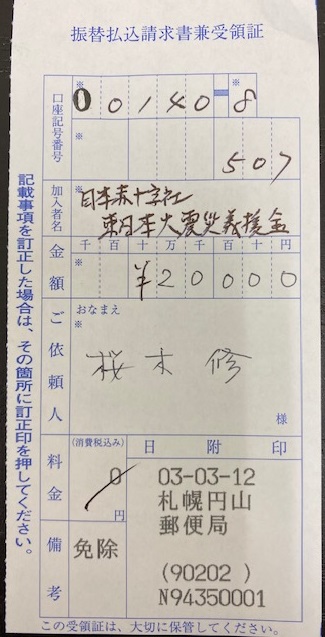 振替払込請求書兼受領証
口座記号番号
※
00140-8
※
※
507
加入者名
※
日本赤十字社
東日本大震災義援金
金額
千百十万千百十円
※
¥20000
ご依頼人
おなまえ
※
桜木 修
様
料金
(消費税込み)
0
円
日附印
03-03-12
札幌円山
郵便局
(90202 )
N94350001
備考
免除
この受領証は、大切に保管してください。
記載事項を訂正した場合は、その箇所に訂正印を押してください。